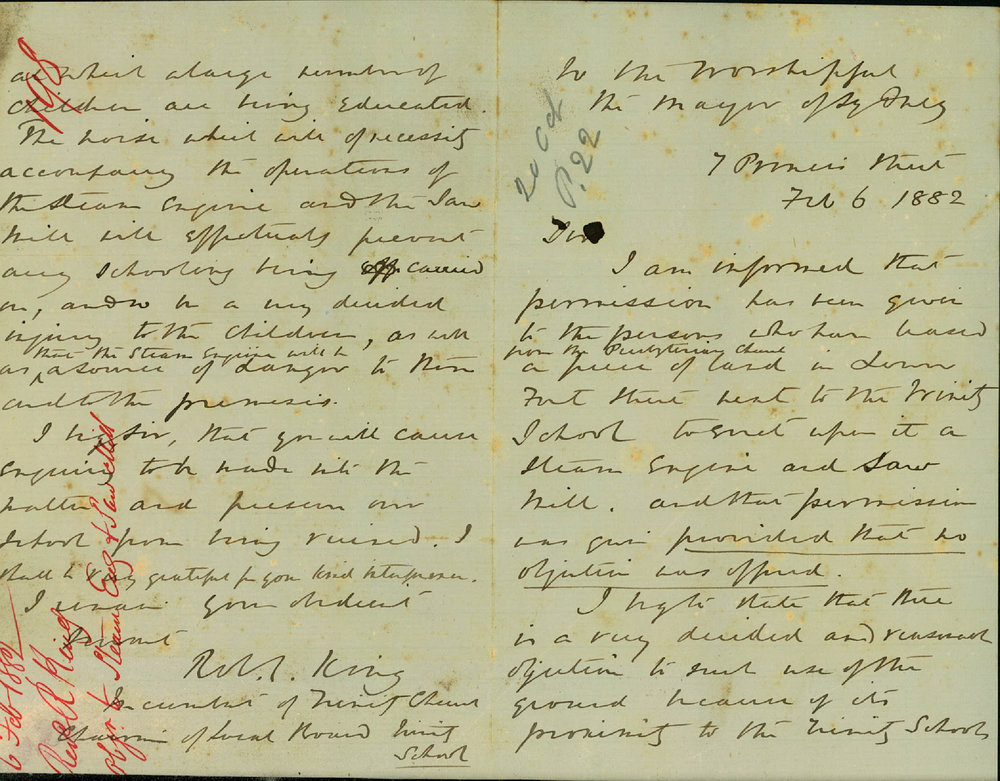 To the Worshipful
The Mayor of Sydney
20 Oct
P. 22
7 Princes Street
Feb 6 1882
Sir
I am informed that
permission has been given
to the persons who have leased
from the Presbyterian Church
a piece of land in Lower
Fort Street next to the Trinity
School to Erect upon it a
Steam Engine and Saw
Mill. and that permission
was given provided that no
objection was offered.
I beg to state that there
is a very decided and reasonable
objection to such use of the
ground because of its
proximity to the Trinity Schools
198
at which a large number of
Children are being Educated.
The noise which will of necessity
accompany the operations of
the Steam Engine and the Saw
Mill will Effectually prevent
any Schooling being carried
on, and so be a very decided
injury to the Children, as well
that the Steam Engine will be
as a source of danger to them
and to the premises.
I beg Sir, that you will cause
Enquiry to be made into the
matter and preserve our
School from being ruined. I
shall be very grateful for your kind interference.
I remain your obedient
Servant
Robt. King
Incumbent of Trinity Church
Chairman of Local Board Trinity
School
6 Feb 1882
Revd R King
objn. to Steam Eng & Saw Mill